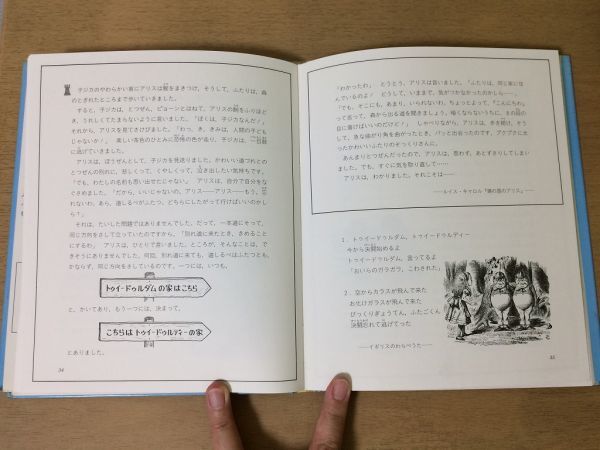 子ジカのやわらかい首にアリスは腕をまきつけ、そうして、ふたりは、森
のとぎれたところまで歩いていきました。
すると、子ジカは、とつぜん、ピョーンとはねて、アリスの腕をふりほど
き、うれしくてたまらないように言いました。「ぼくは、子ジカなんだ！」
それから、アリスを見てさけびました。「わっ、きみは、人間の子ども
じゃないか！」　美しい茶色のひとみに恐怖の色が走り、子ジカは、一目散
に逃げていきました。
アリスは、ぼうぜんとして、子ジカを見送りました。かわいい道づれとの
とつぜんの別れに、悲しくて、くやしくって、泣き出したい気持ちです。
「でも、わたしの名前も思い出せたじゃない」　アリスは、自分で自分をな
ぐさめました。「だから、いいじゃないの。アリス――アリス――もう、忘
れないわ。あら、道しるべがふたつ、どちらにしたがって行けばいいのかし
ら？」
それは、たいした問題ではありませんでした。だって、一本道にそって、
同じ方向をさして立っていたのですから。「別れ道に来たとき、きめること
にするわ」　アリスは、ひとりで言いました。ところが、そんなことは、で
きそうにありませんでした。何回、別れ道に来ても、道しるべはふたつとも、
かならず、同じ方向をさしているのです。一つには、いつも、
トゥイードゥルダムの家はこちら
と、かいてあり、もう一つには、決まって、
こちらはトゥイードゥルディーの家
とありました。
34
「わかったわ」　とうとう、アリスは言いました。「ふたりは、同じ家に住
んでいるのよ！　どうして、いままで、気がつかなかったのかしら――。
「でも、そこにも、あまり、いられないわ。ちょっとよって、『こんにちわ』
って言って、森から出る道を聞きましょう。暗くならないうちに、８の目の
目に着けばいいのだけど！」　しゃべりながら、アリスは、歩き続け、そう
して、急な曲がり角を曲がったとき、バッと出会ったのです。プクプクに太
ったかわいいふたりのぞっくりさんに。
あんまりとつぜんだったので、アリスは、思わず、あとずさりしてしまい
ました。でも、すぐに気を取り直して……
アリスは、わかりました。それこそは――
――ルイス・キャロル『鏡の国のアリス』――
1．トゥイードゥルダム、トゥイードゥルディー
今から決闘始めるよ
トゥイードゥルダム、言ってるよ
「おいらのガラガラ、こわされた」
2．空からカラスが飛んで来た
おばけガラスが飛んで来た
びっくりぎょうてん、ふたごくん
決闘忘れて逃げてった
――イギリスのわらべうた――
35